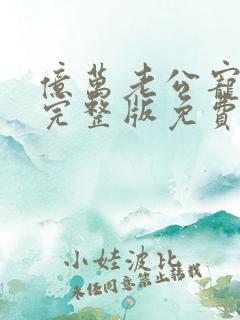 億萬老公寵
完整版免費
小娃波比
未经同意禁止转载